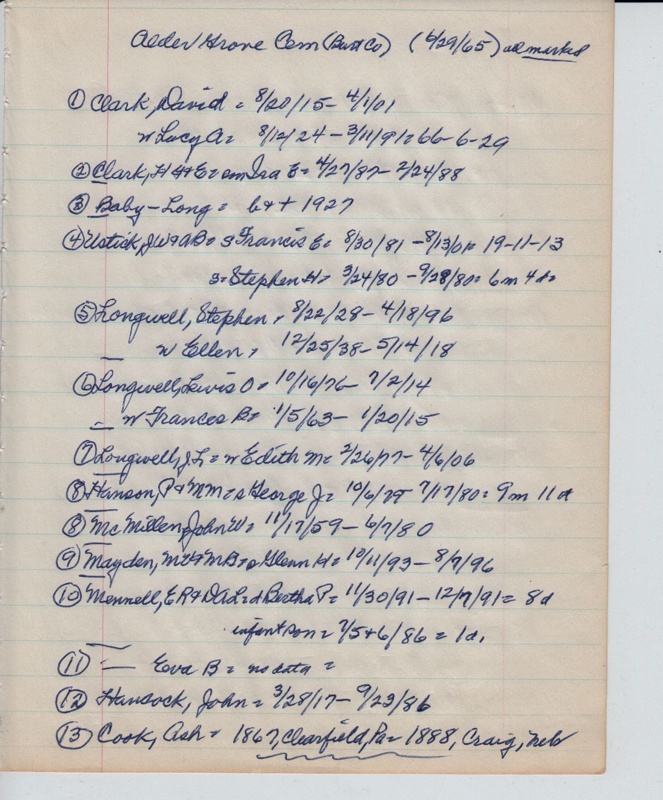 Alder Grove Cem (Burt Co) (4/29/65) all marked
① Clark, David = 8/20/15 - 4/1/01
w Lucy A = 8/12/24 - 3/11/91 = 66-6-29
② Clark, H & E = son Ira E = 4/27/87 - 2/24/88
③ Baby - Long = b & + 1927
④ Ustick, J W & A B = s Francis E = 8/30/81 - 8/13/01 = 19-11-13
s = Stephen H = 3/24/80 - 9/28/80 = 6 m 4 d =
⑤ Longwell, Stephen = 8/22/28 - 4/18/96
w Ellen = 12/25/38 - 5/14/18
⑥ Longwell, Lewis O = 10/16/76 - 7/2/14
w Frances B = 1/5/63 - 1/20/15
⑦ Longwell, J. L = w Edith M = 2/26/77 - 4/6/06
⑧ Hanson, P & M M = s George J = 10/6/79 7/17/80 = 9 m 11 d
⑧ McMillen, John W = 11/17/59 - 6/7/80
⑨ Mayden, M & M B = s Glenn H = 10/11/93 - 8/7/96
⑩ Mennell, E R & D A L = d Bertha P = 11/30/91 - 12/7/91 = 8 d
infant son = 7/5 & 6/86 = 1 d.
⑪ — Eva B = no data =
⑫ Hancock, John = 3/28/17 - 9/23/86
⑬ Cook, Ash = 1867, Clearfield, Pa = 1888, Craig, Neb